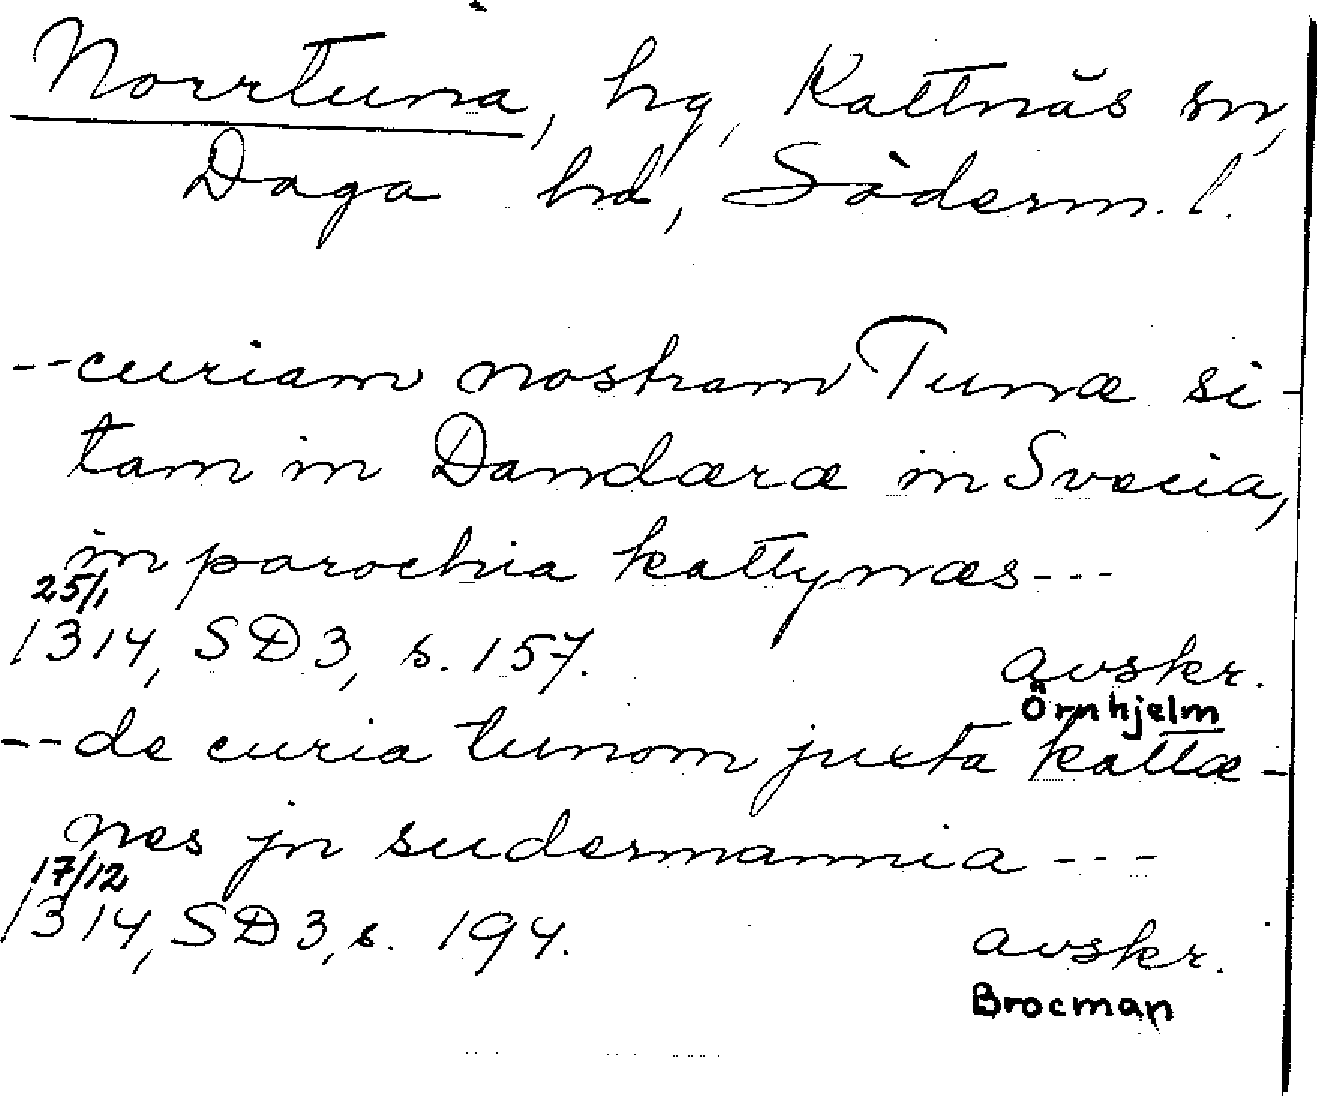 Norrtuna, hg, Kattnäs sn,
Daga hd, Söderm. l.
--curiam nostram Tunæ si-
tam in Dandæræ in Svecia,
in parochia kattynæs---
25/1
1314, SD3, s. 157. avskr.
Örnhjelm
--de curia tunom juxta kattæ-
nes jn sudermannia ---
17/12
1314, SD3, s. 194. avskr.
Brocman